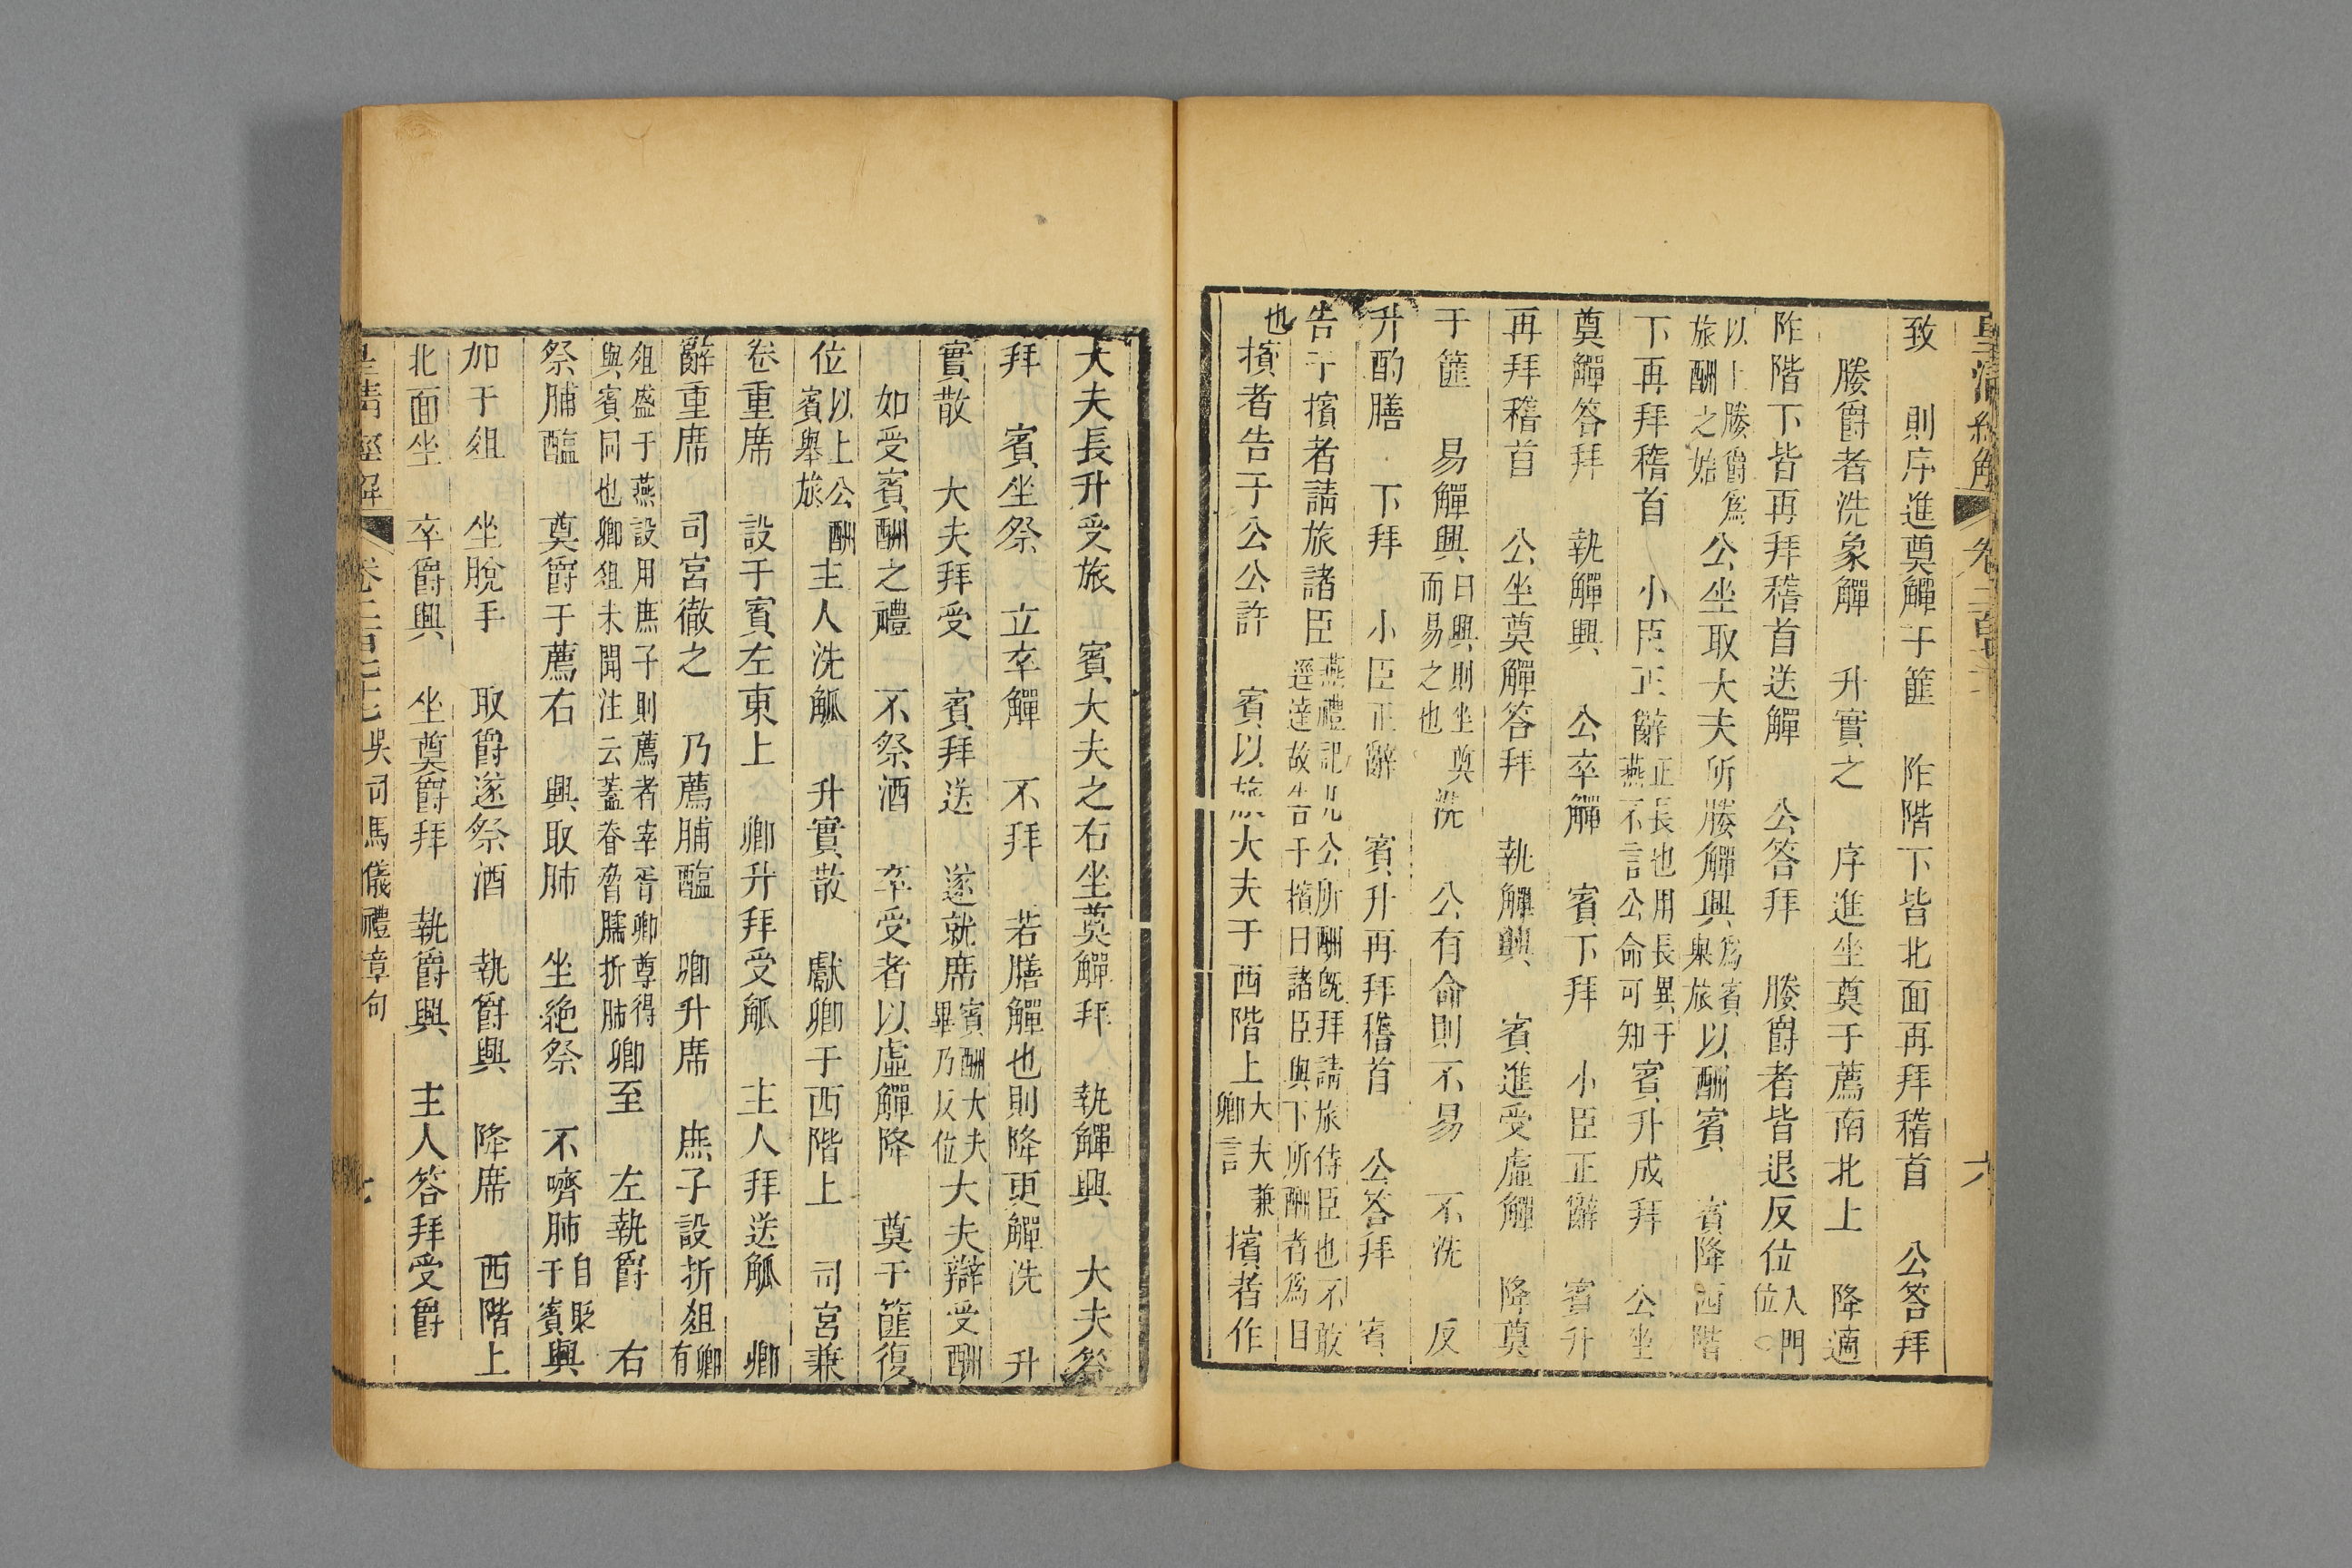 皇清經解 卷二百七十 六
致 則序進奠觶于篚 阼階下皆北面再拜稽首 公答拜
媵爵者洗象觶 升實之 序進坐奠于薦南北上 降適
阼階下皆再拜稽首送觶 公答拜 媵爵者皆退反位入門位○
以上媵爵爲旅酬之始公坐取大夫所媵觶興以酬賓爲賓舉旅 賓降西階
下再拜稽首 小臣正辭正長也用長異于燕不言公命可知賓升成拜 公坐
奠觶答拜 執觶興 公卒觶 賓下拜 小臣正辭 賓升
再拜稽首 公坐奠觶答拜 執觶興 賓進受虛觶 降奠
于篚 易觶興曰興則坐奠而易之也洗 公有命則不易 不洗 反
升酌膳 下拜 小臣正辭 賓升再拜稽首 公答拜 賓
告于擯者請旅諸臣燕禮記凡公所酬旣拜請旅侍臣也不敢逕達故告于擯曰諸臣與下所酬者爲目
也擯者告于公公許 賓以旅大夫于西階上大夫兼卿言擯者作
大夫長升受旅 賓大夫之右坐奠觶拜 執觶興 大夫答
拜 賓坐祭 立卒觶 不拜 若膳觶也則降更觶洗 升
實散 大夫拜受 賓拜送 遂就席賓酬大夫畢乃反位大夫辯受酬
如受賓酬之禮 不祭酒 卒受者以虛觶降 奠于篚復
位以上公酬賓舉旅主人洗觚 升實散 獻卿于西階上 司宮兼
卷重席 設于賓左東上 卿升拜受觚 主人拜送觚 卿
辭重席 司宮徹之 乃薦脯醢 卿升席 庶子設折俎卿有
俎盛于燕設用庶子則薦者宰胥卿尊得與賓同也卿俎未聞注云蓋脊脅臑折肺卿至 左執爵 右
祭脯醢 奠爵于薦右 興取肺 坐絕祭 不嚌肺自貶于賓興
加于俎 坐脫手 取爵遂祭酒 執爵興 降席 西階上
北面坐 卒爵興 坐奠爵拜 執爵興 主人答拜受爵
皇清經解 卷二百七十 吳司馬儀禮章句 七